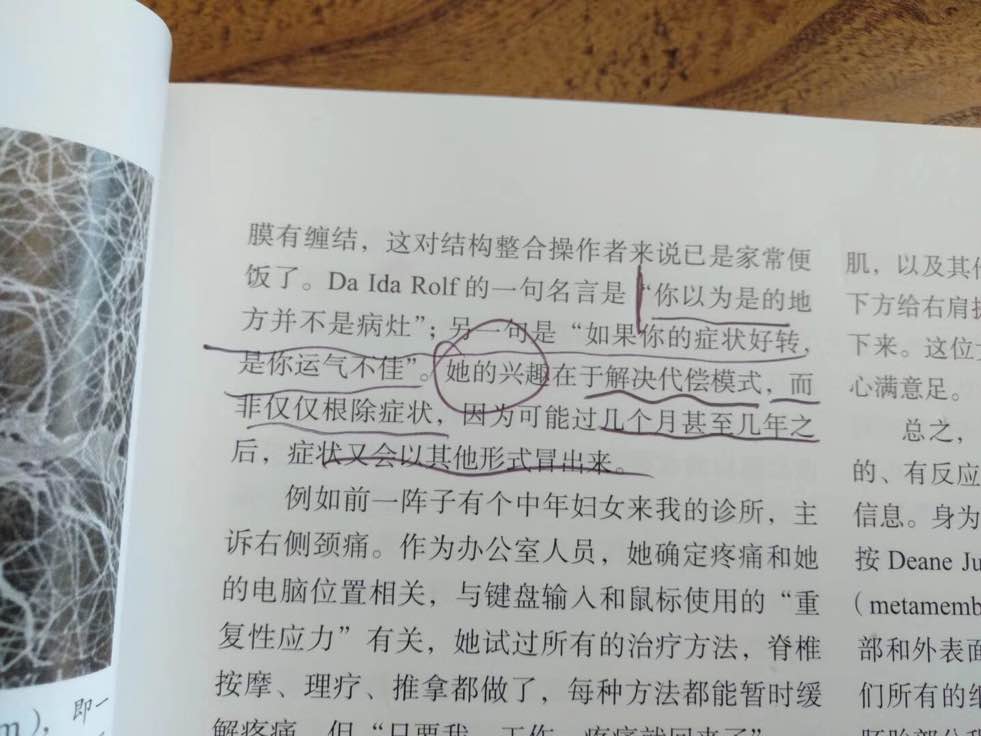 膜有缠结，这对结构整合操作者来说已是家常便
饭了。Da Ida Rolf的一句名言是“你以为是的地
方并不是病灶”；另一句是“如果你的症状好转，
是你运气不佳”。她的兴趣在于解决代偿模式，而
非仅仅根除症状，因为可能过几个月甚至几年之
后，症状又会以其他形式冒出来。
例如前一阵子有个中年妇女来我的诊所，主
诉右侧颈痛。作为办公室人员，她确定疼痛和她
的电脑位置相关，与键盘输入和鼠标使用的“重
复性应力”有关，她试过所有的治疗方法，脊椎
按摩、理疗、推拿都做了，每种方法都能暂时缓
解疼痛，但“只要我一工作，疼痛就回来了”
肌，以及其
下方给右肩
下来。这位
心满意足。
总之，
的、有反应
信息。身为
按 Deane Ju
（metamemb
部和外表面
们所有的细
即一
m），